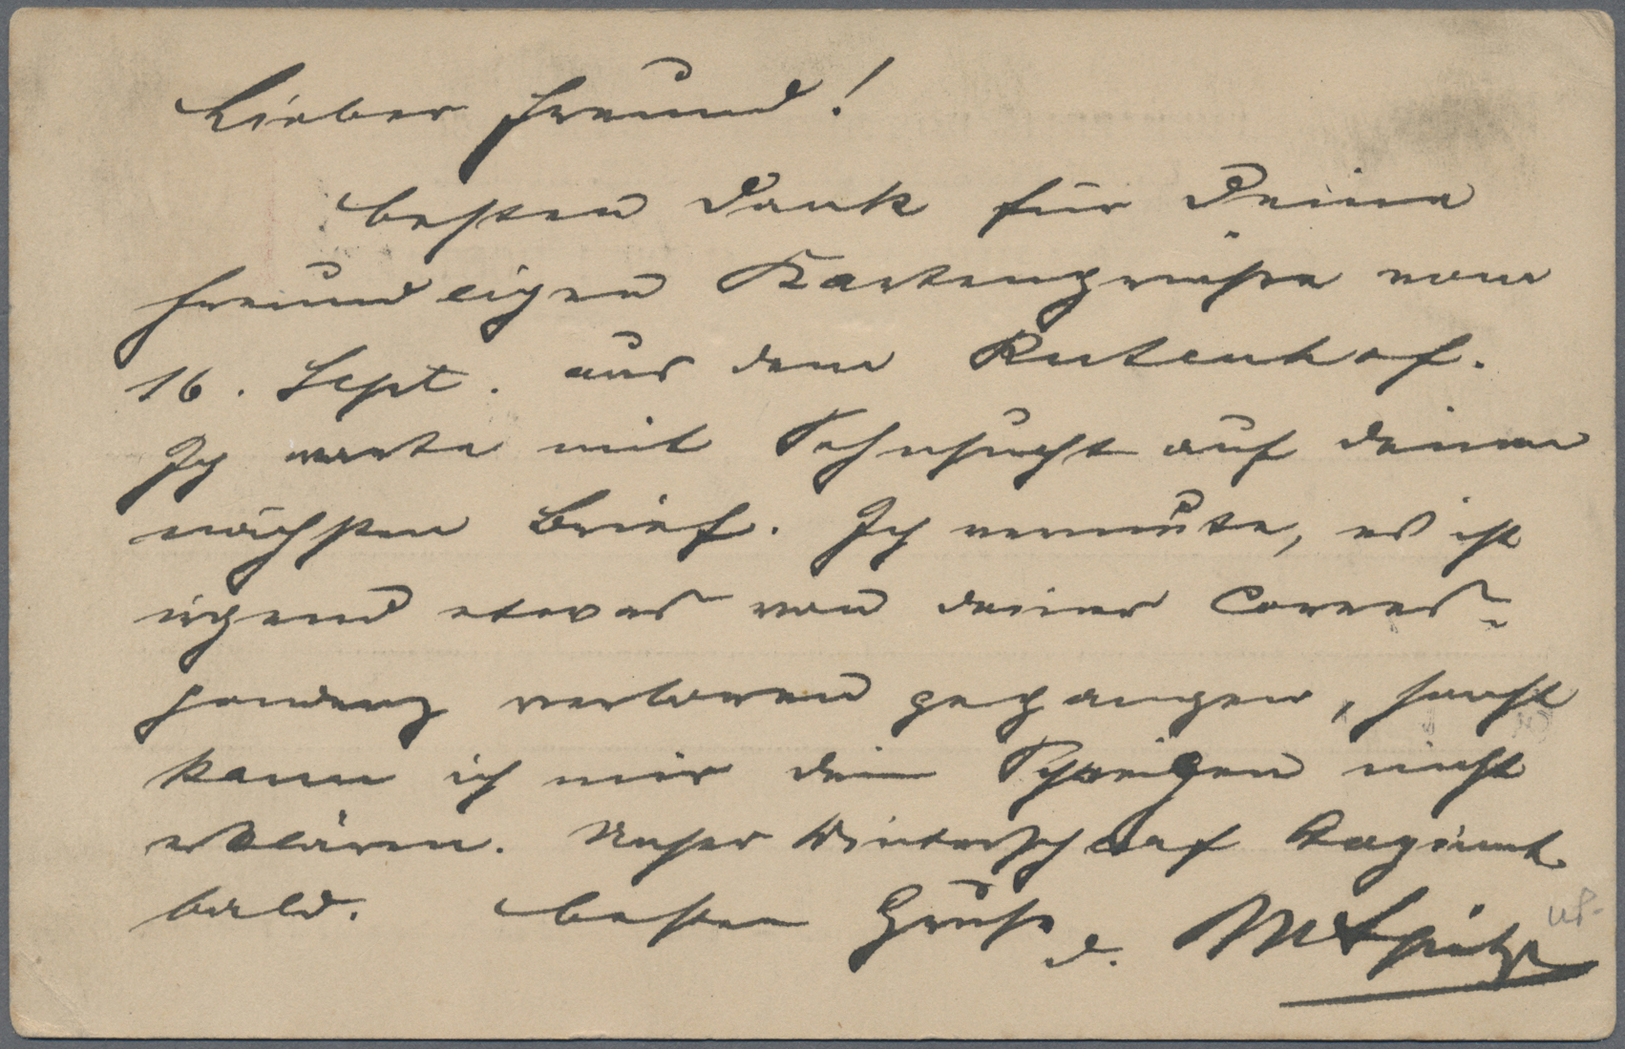 Lieber Freund!
besten Dank für Deine
freundlichen Kartengrüße vom
16. Sept. aus dem Rutenhof.
Ich warte mit Sehnsucht auf deinen
nächsten Brief. Ich vermute, es ist
irgend etwas von deiner Corres-
pondenz verloren gegangen, sonst
kann ich mir dein Schweigen nicht
erklären. Unser Winterschlaf beginnt
bald. besten Gruß d. M Spitz